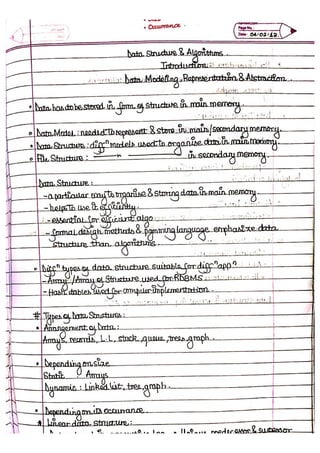 • Occurrance •
Page No.
Date 04-02-22
Data Structure & Algorithms.
Introduction
Data Modelling, Representation & Abstraction.
• Data has to be stored in form of structure in main memory.
• Data Model : needed to represent & store in main/secondary memory.
• Data Structure : diffⁿ models used to organise data in main memory.
• File Structure : in secondary memory.
Data Structure :
- a particular way to organise & storing data in main memory.
- help to use it efficiently.
- essential for efficient algo
- formal design methods & pgmming language emphasize data
structure than algorithms.
• Diffⁿ types of data structure suitable for diffⁿ appⁿ
- Array / Array of Structure used for RDBMS
- Hash tables used for compiler implementation.
# Types of Data Structures :
• Arrangement of Data :
Arrays, records, L.L, stack, queue, tree, graph.
• Depending on size
Static : Arrays
Dynamic : Linked list, tree, graph.
• Depending on its occurance.
* Linear data structure :
predecessor & successor